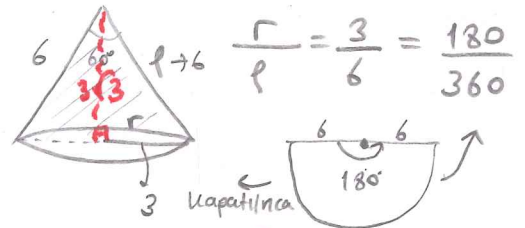 6
60°
ρ→6
3√3
r
3
r/ρ = 3/6 = 180/360
6 6
180°
Kapatılınca